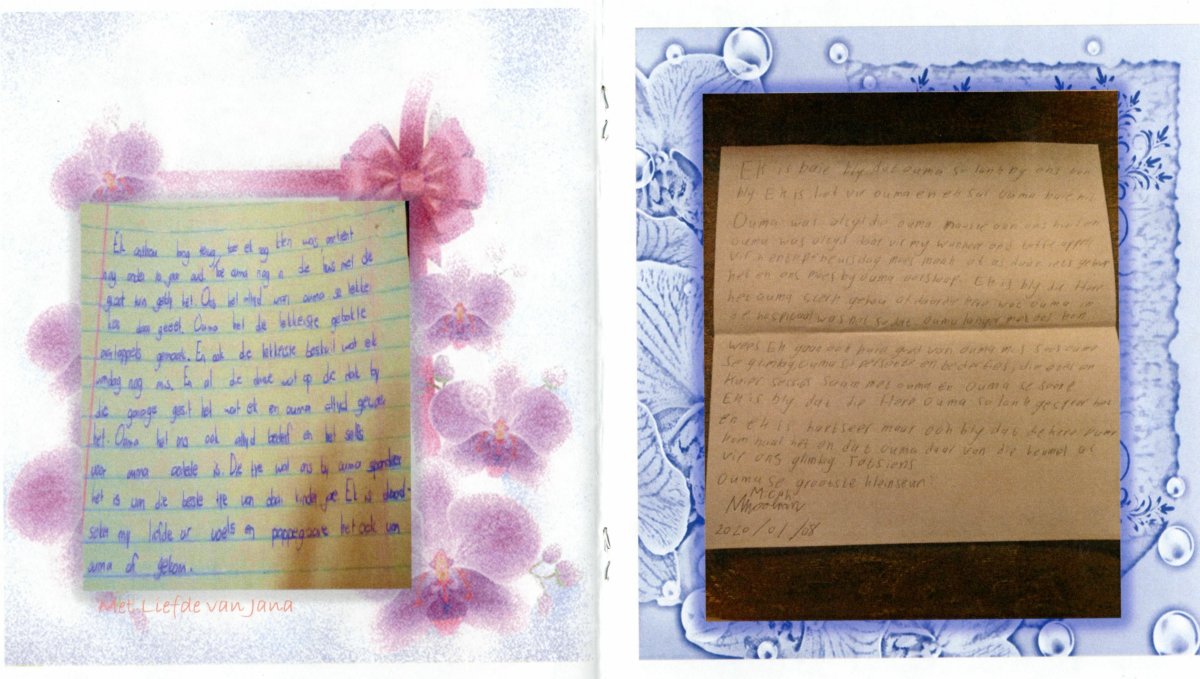 Ek onthou lang terug, toe ek nog klein was omtrent
nog onder 10 jaar oud. Toe ouma nog in die huis met die
groot tuin gebly het. Ons het altyd van ouma se lekke
kos daar geëet. Ouma het die lekkerste gebakte
aartappels gemaak. En ook die lekkerste beskuit wat ek
vandag nog mis. En al die duiwe wat op die dak by
die garage gesit het wat ek en ouma altyd gevoer
het. Ouma het ons ook altyd bederf en het selfs
voor ouma
Die tye wat ons by ouma spandeer
het is van die beste tye van daai kinder jare. Ek is
seker my liefde vir voels en papegaaie het ook van
ouma af gekom.
Met Liefde van Jana
Ek is baie bly dat ouma so lank by ons kon
bly Ek is lief vir ouma en ek sal ouma baie mis
Ouma was altyd die ouma
ouma was altyd daar vir my
vir 'n entrepreneursdag moes maak of as daar iets gebeur
het en ons moes by ouma oorslaap. Ek is bly die Here
het ouma sterk gehou al daardie kere wat ouma in
die hospitaal was het sodat ouma langer met ons kon
wees Ek gaan ook baie goed van ouma mis soos ouma
se glimlag, ouma se
en bederfies, die
kuier sessies saam met ouma en ouma se
Ek is bly dat die Here Ouma so lank gespaar het
en Ek is hartseer maar ook bly dat die Here ouma
kom haal het en dat ouma daar van die hemel as
vir ons glimlag Totsiens
Ouma se grootste kleinseun
2020/01/08